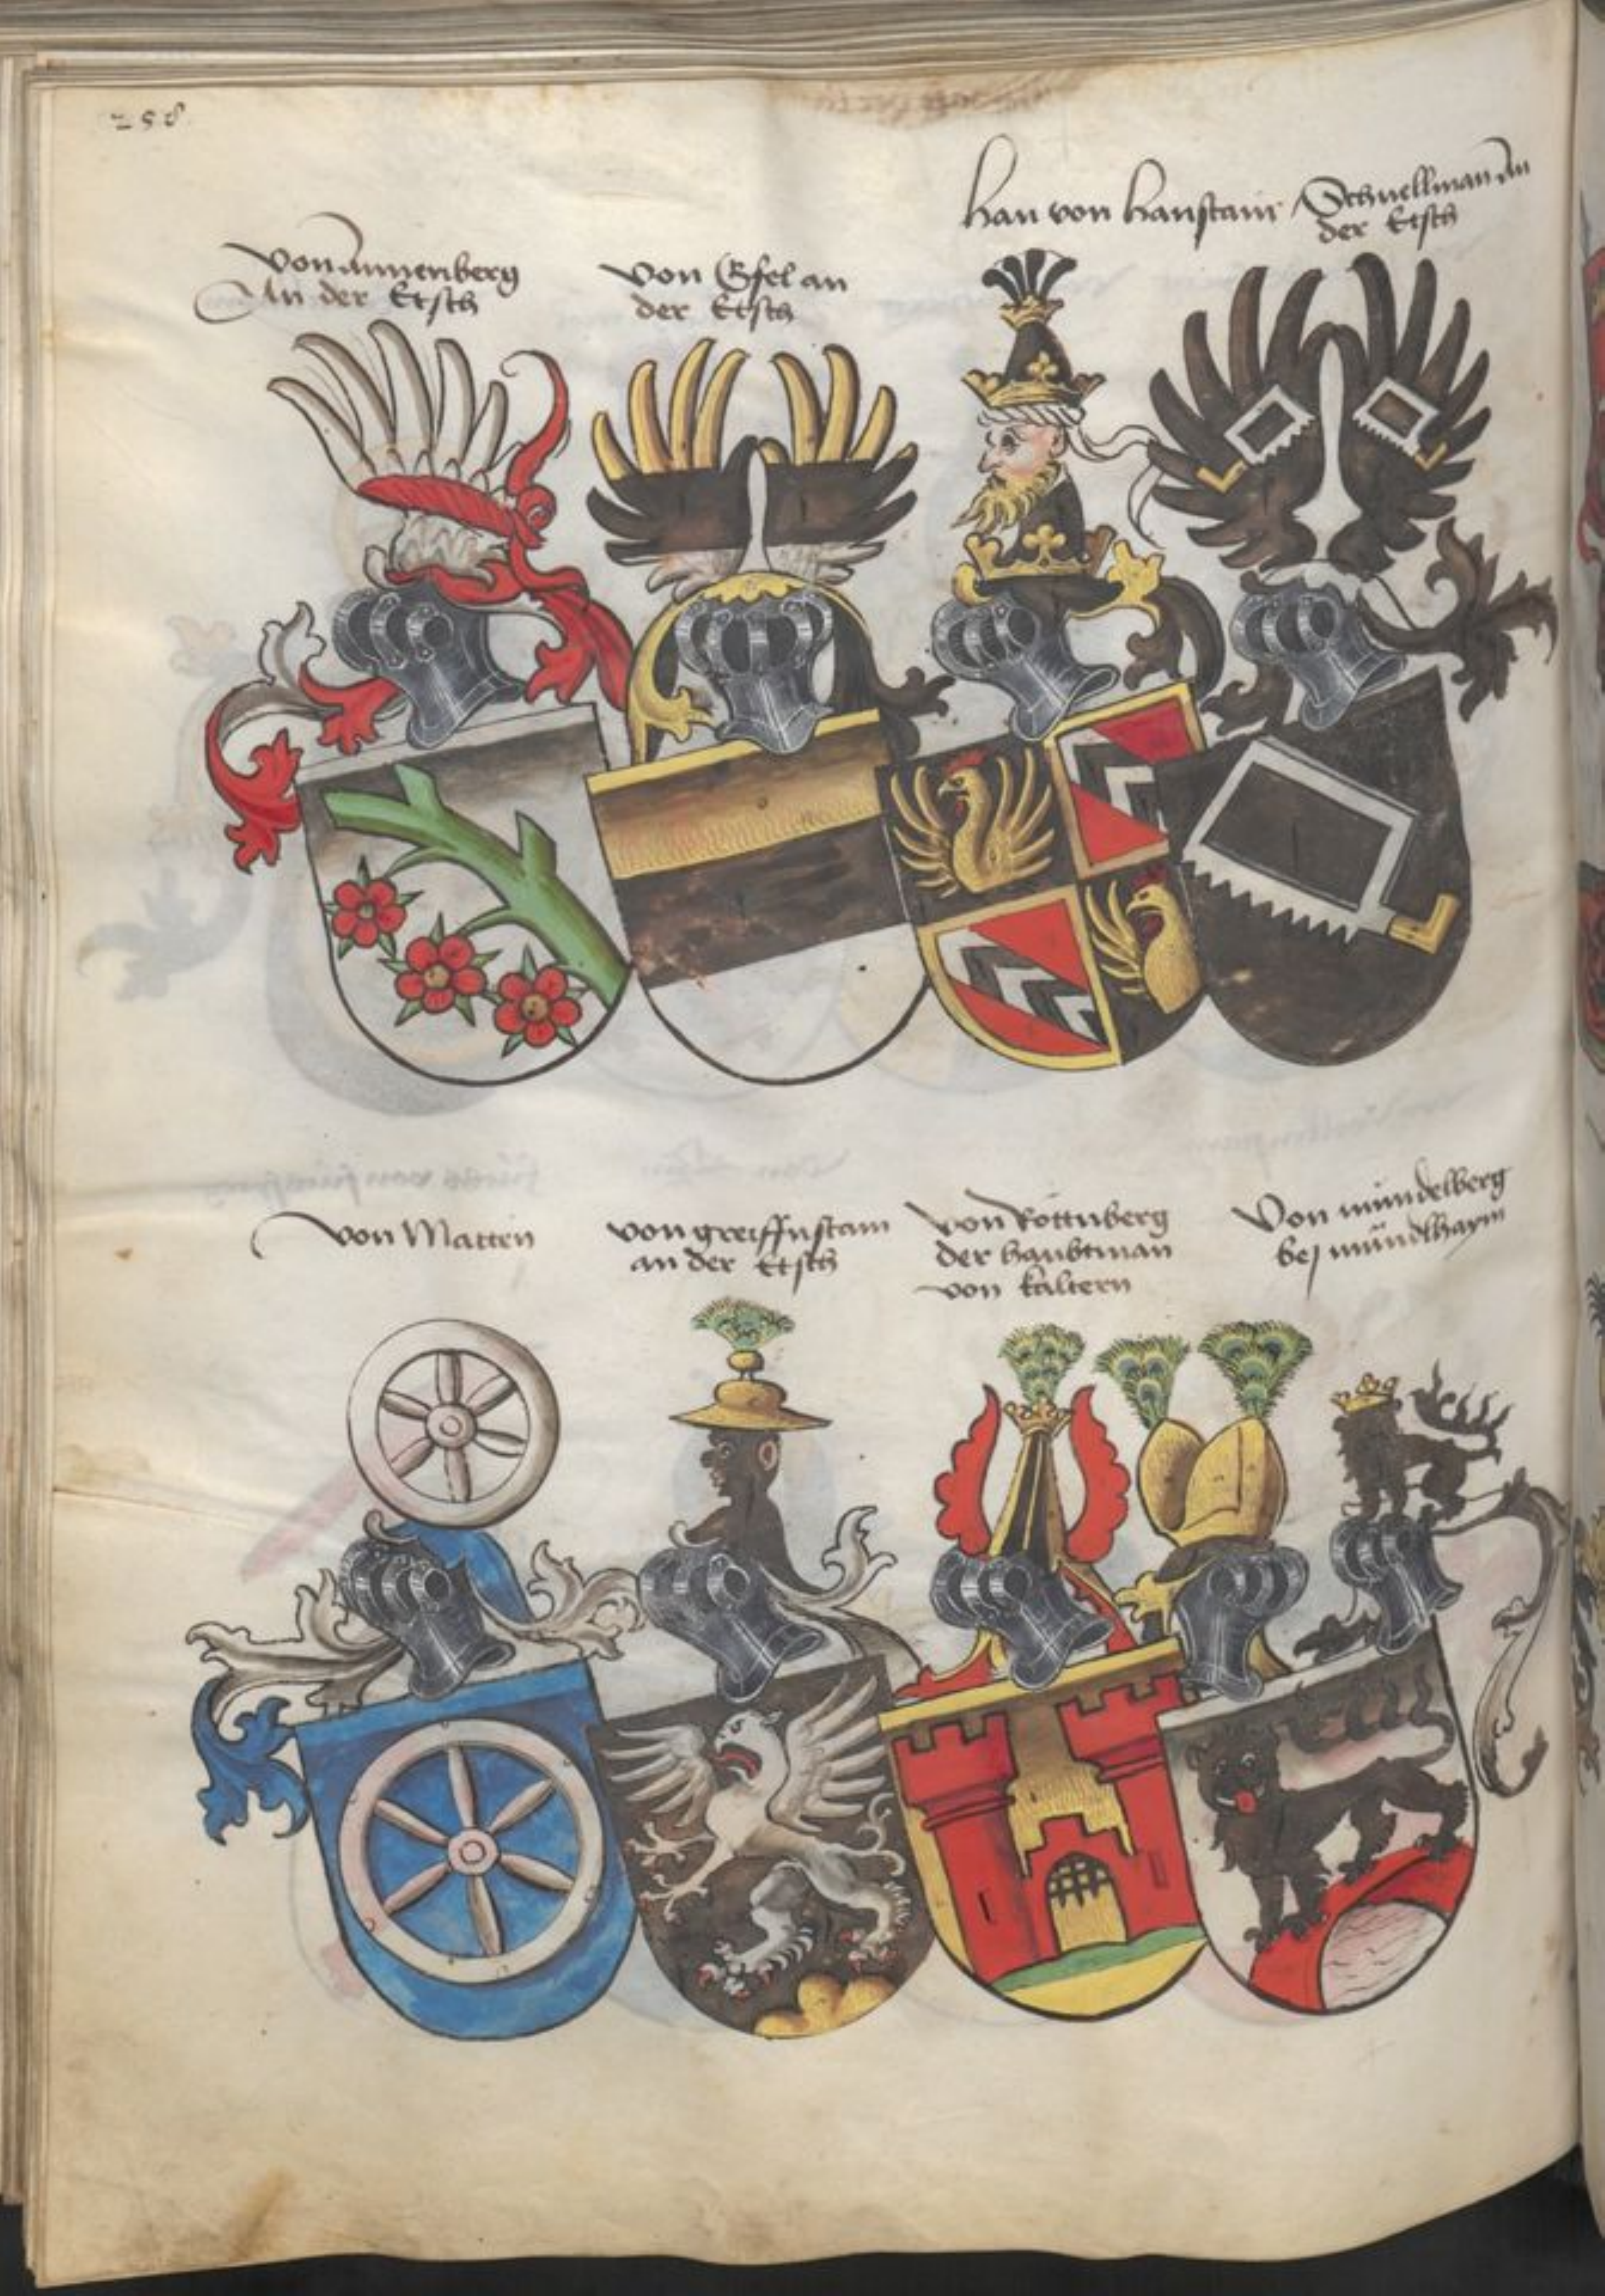 258
Von Annenberg
An der Etsch
von Gsel an
der Etsch
han von hanstain
Schnellman An
der Etsch
von Matten
von greiffnstain
an der Etsch
von Rottnberg
der haubtman
von kaltern
Von mündelberg
bej mündlhaym